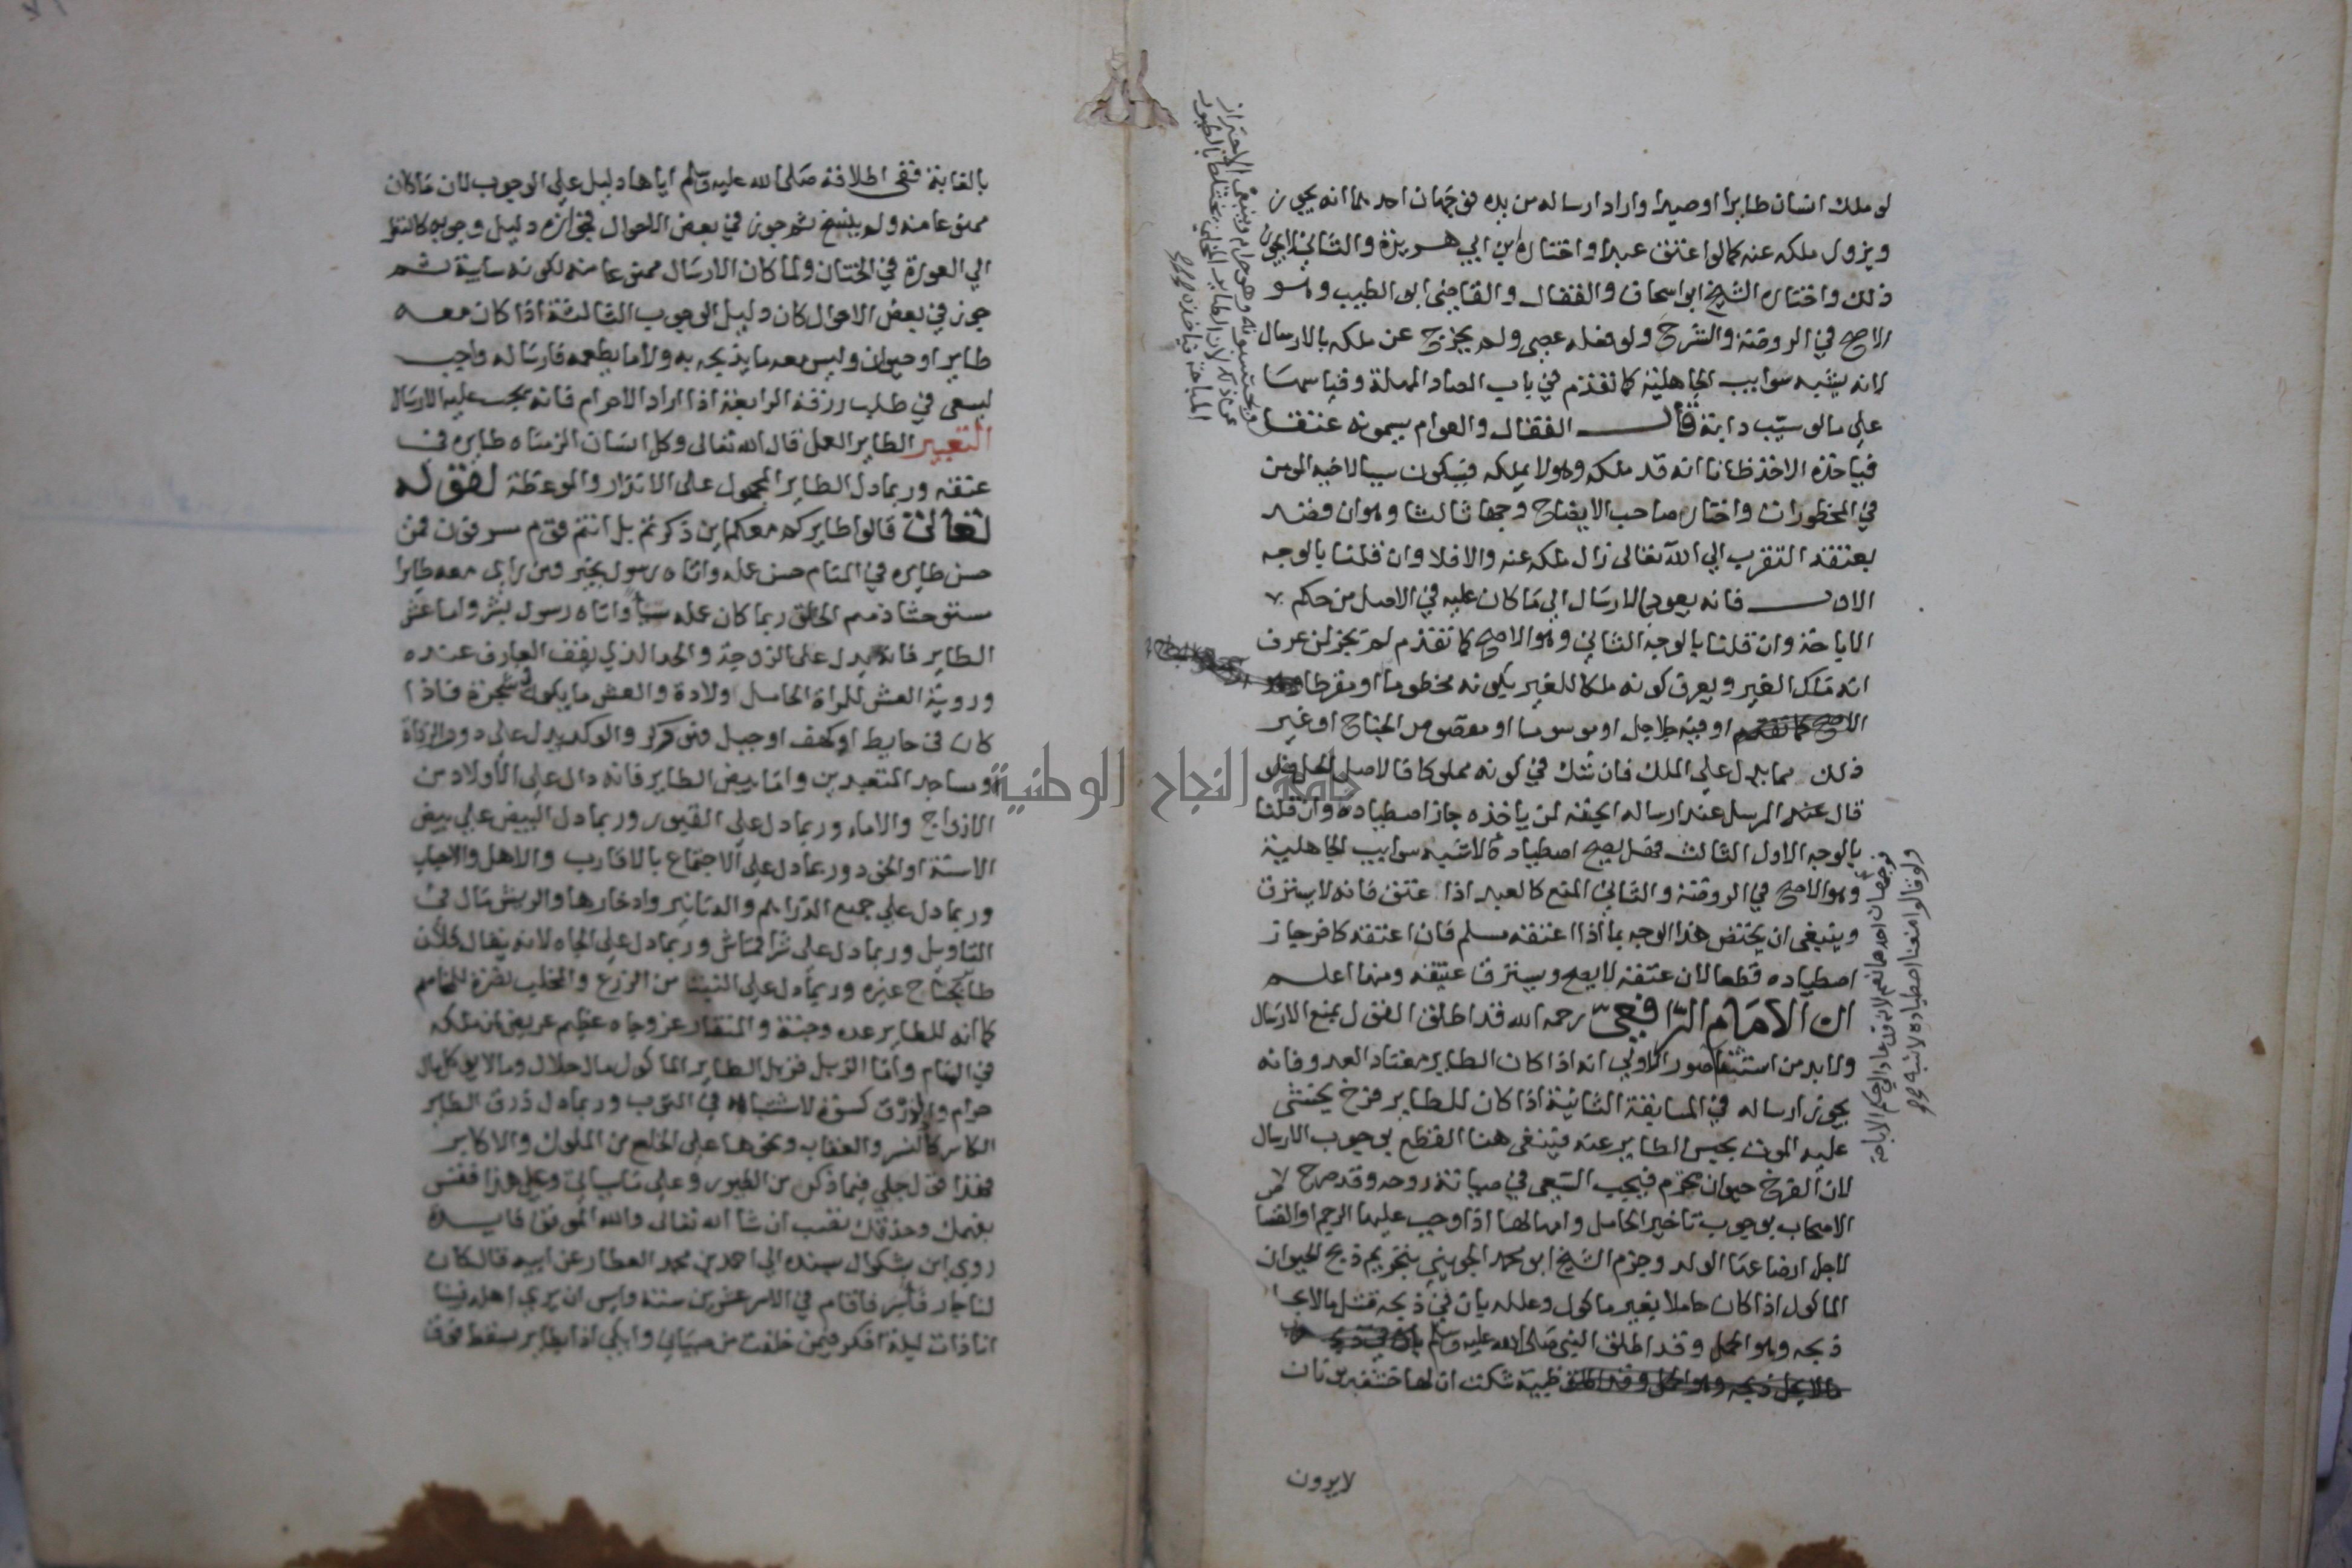 لو ملك انسان طايرا او صيدا واراد ارساله من يده فوجهان احدهما انه يجوز
ويزول ملكه عنه كما لو اعتق عبدا واختاره ابن ابي هريرة والثاني لا يجوز
ذلك واختاره الشيخ ابو اسحاق والقفال والقاضي ابو الطيب وهو
الاصح في الروضة والشرح ولو فعله عصى ولم يخرج عن ملكه بالارسال
لانه يشبه سوايب الجاهلية كما تقدم في باب الصاد المهملة وقياسها
على ما لو سيب دابة قال القفال والعوام يسمونه عتقا
ويحتسبونه وهو حرام وينبغي الاحتراز
عن ذلك لان الطاير المخلى يختلط بالطيور
المباحة فياخذه
فياخذه الاخذ ظانا انه قد ملكه وهو لا يملكه فيكون سببا لاخيه المومن
في المحظورات واختار صاحب الايضاح وجها ثالثا وهو ان قصد
بعتقه التقرب الي الله تعالى زال ملكه عنه والا فلا وان قلنا بالوجه
الاول فانه يعود بالارسال الي ما كان عليه في الاصل من حكم
الاباحة وان قلنا بالوجه الثاني وهو الاصح كما تقدم لم يجز لمن عرف
انه ملك الغير ويعرف كونه ملكا للغير بكونه مخطوما او مقرطا وهو
الاصح كما تقدم او فيه جلاجل او موسوما او مقصوص الجناح او غير
ذلك مما يدل على الملك فان شك في كونه مملوكا فالاصل الحل فلو
قال عند المرسل عند ارساله ابحته لمن ياخذه جاز اصطياده وان قلنا
بالوجه الاول الثالث فهل يصح اصطياده لاشبه سوايب الجاهلية
ولو قالوا منعنا اصطياده لاشبه
فوجهان احدهما نعم لانه قد عاد الي حكم الاباحة
وهو الاصح في الروضة والثاني المنع كالعبد اذا عتق فانه لا يسترق
وينبغي ان يختص هذا الوجه بما اذا اعتقه مسلم فان اعتقه كافر جاز
اصطياده قطعا لان عتقه لا يصح ويسترق عتيقه ومنها اعلم
ان الامام الرافعي رحمه الله قد اطلق القول بمنع الارسال
ولا بد من استثنا صور الاولي انه اذا كان الطاير معتاد العدو فانه
يجوز ارساله في المسابقة الثانية اذا كان للطاير فرخ يخشى
عليه الموت بحبس الطاير عنه فينبغي هنا القطع بوجوب الارسال
لان الفرخ حيوان محترم فيجب السعي في صيانة روحه وقد صرح
الاصحاب بوجوب تاخير الحامل وامهالها اذا وجب عليها الرجم او القصا
لاجل ارضاعها الولد وجزم الشيخ ابو محمد الجويني بتحريم ذبح الحيوان
الماكول اذا كان حاملا بغير ماكول وعلله بان في ذبحه قتل ما لا يحل
ذبحه وهو الحمل وقد اطلق النبي صلى الله عليه وسلم
ما لا يحل ذبحه وهو الحمل وقد اطلق ظبية شكت ان لها خشفين
لا يرون
بالغابة ففي اطلاقه صلى الله عليه وسلم اياها دليل علي الوجوب لان ما كان
ممنوعا منه ولم ينسخ ثم جوز في بعض الاحوال فجوازه دليل وجوبه كالنظر
الي العورة في الختان ولما كان الارسال ممنوعا منه لكونه سايبة ثم
جوز في بعض الاحوال كان دليل الوجوب الثالثة اذا كان معه
طاير او حيوان وليس معه ما يذبحه به ولا ما يطعمه فارساله واجب
ليسعى في طلب رزقه الرابعة اذا اراد الاحرام فانه يجب عليه الارسال
التعبير الطاير العمل قال الله تعالى وكل انسان الزمناه طايره في
عنقه وربما دل الطاير المجهول على الانذار والموعظة لقوله
تعالى قالوا طايركم معكم اين ذكرتم بل انتم قوم مسرفون فمن
حسن طايره في المنام حسن عمله واتاه رسول بخير ومن راى معه طايرا
الخلق ربما كان عمله سيا واتاه رسول بشر واما عش
الطاير فانه يدل على الزوجة والحد الذي يقف العارف عنده
وروية العش للمراة الحامل ولادة والعش ما يكون في شجرة فاذا
كان في حايط او كهف او جبل فهو وكر والوكر يدل على دور الزناة
او مساجد المتعبدين واما بيض الطاير فانه دال على الاولاد من
الازواج والاماء وربما دل على القبور وربما دل البيض على بيض
وربما دل على الاجتماع بالاقارب والاهل والاحباب
وربما دل علي جميع الدراهم والدنانير وادخارها والريش مال في
التاويل وربما دل على شرا قماش وربما دل على الجاه لانه يقال فلان
طاير بجناح غيره وربما دل على النبت من الزرع والمخلب نصرة للمخاصم
كما انه للطاير عده وجنة والمنقار عز وجاه عظيم عريض لمن ملكه
في المنام واما الزبل فزبل الطاير الماكول مال حلال وما لا يوكل مال
حرام والذرق كسوة لاشتباهه في الثوب وربما دل ذرق الطاير
الكاسر كالنسر والعقاب ونحوها على الخلع من الملوك والاكابر
فهذا قول جلي فيما ذكر من الطيور وعلى ما سياتي وعلى هذا فقس
بفهمك وحذقك تصب ان شا الله تعالى والله الموفق فايدة
روى ابن بشكوال بسنده الي احمد بن محمد العطار عن ابيه قال كان
لنا جار فاسر فاقام في الاسر عشرين سنة وايس ان يرى اهله فبينا
انا ذات ليلة افكر فيمن خلفت من صبياني وابكي اذا بطاير سقط فوق
جامعة النجاح الوطنية